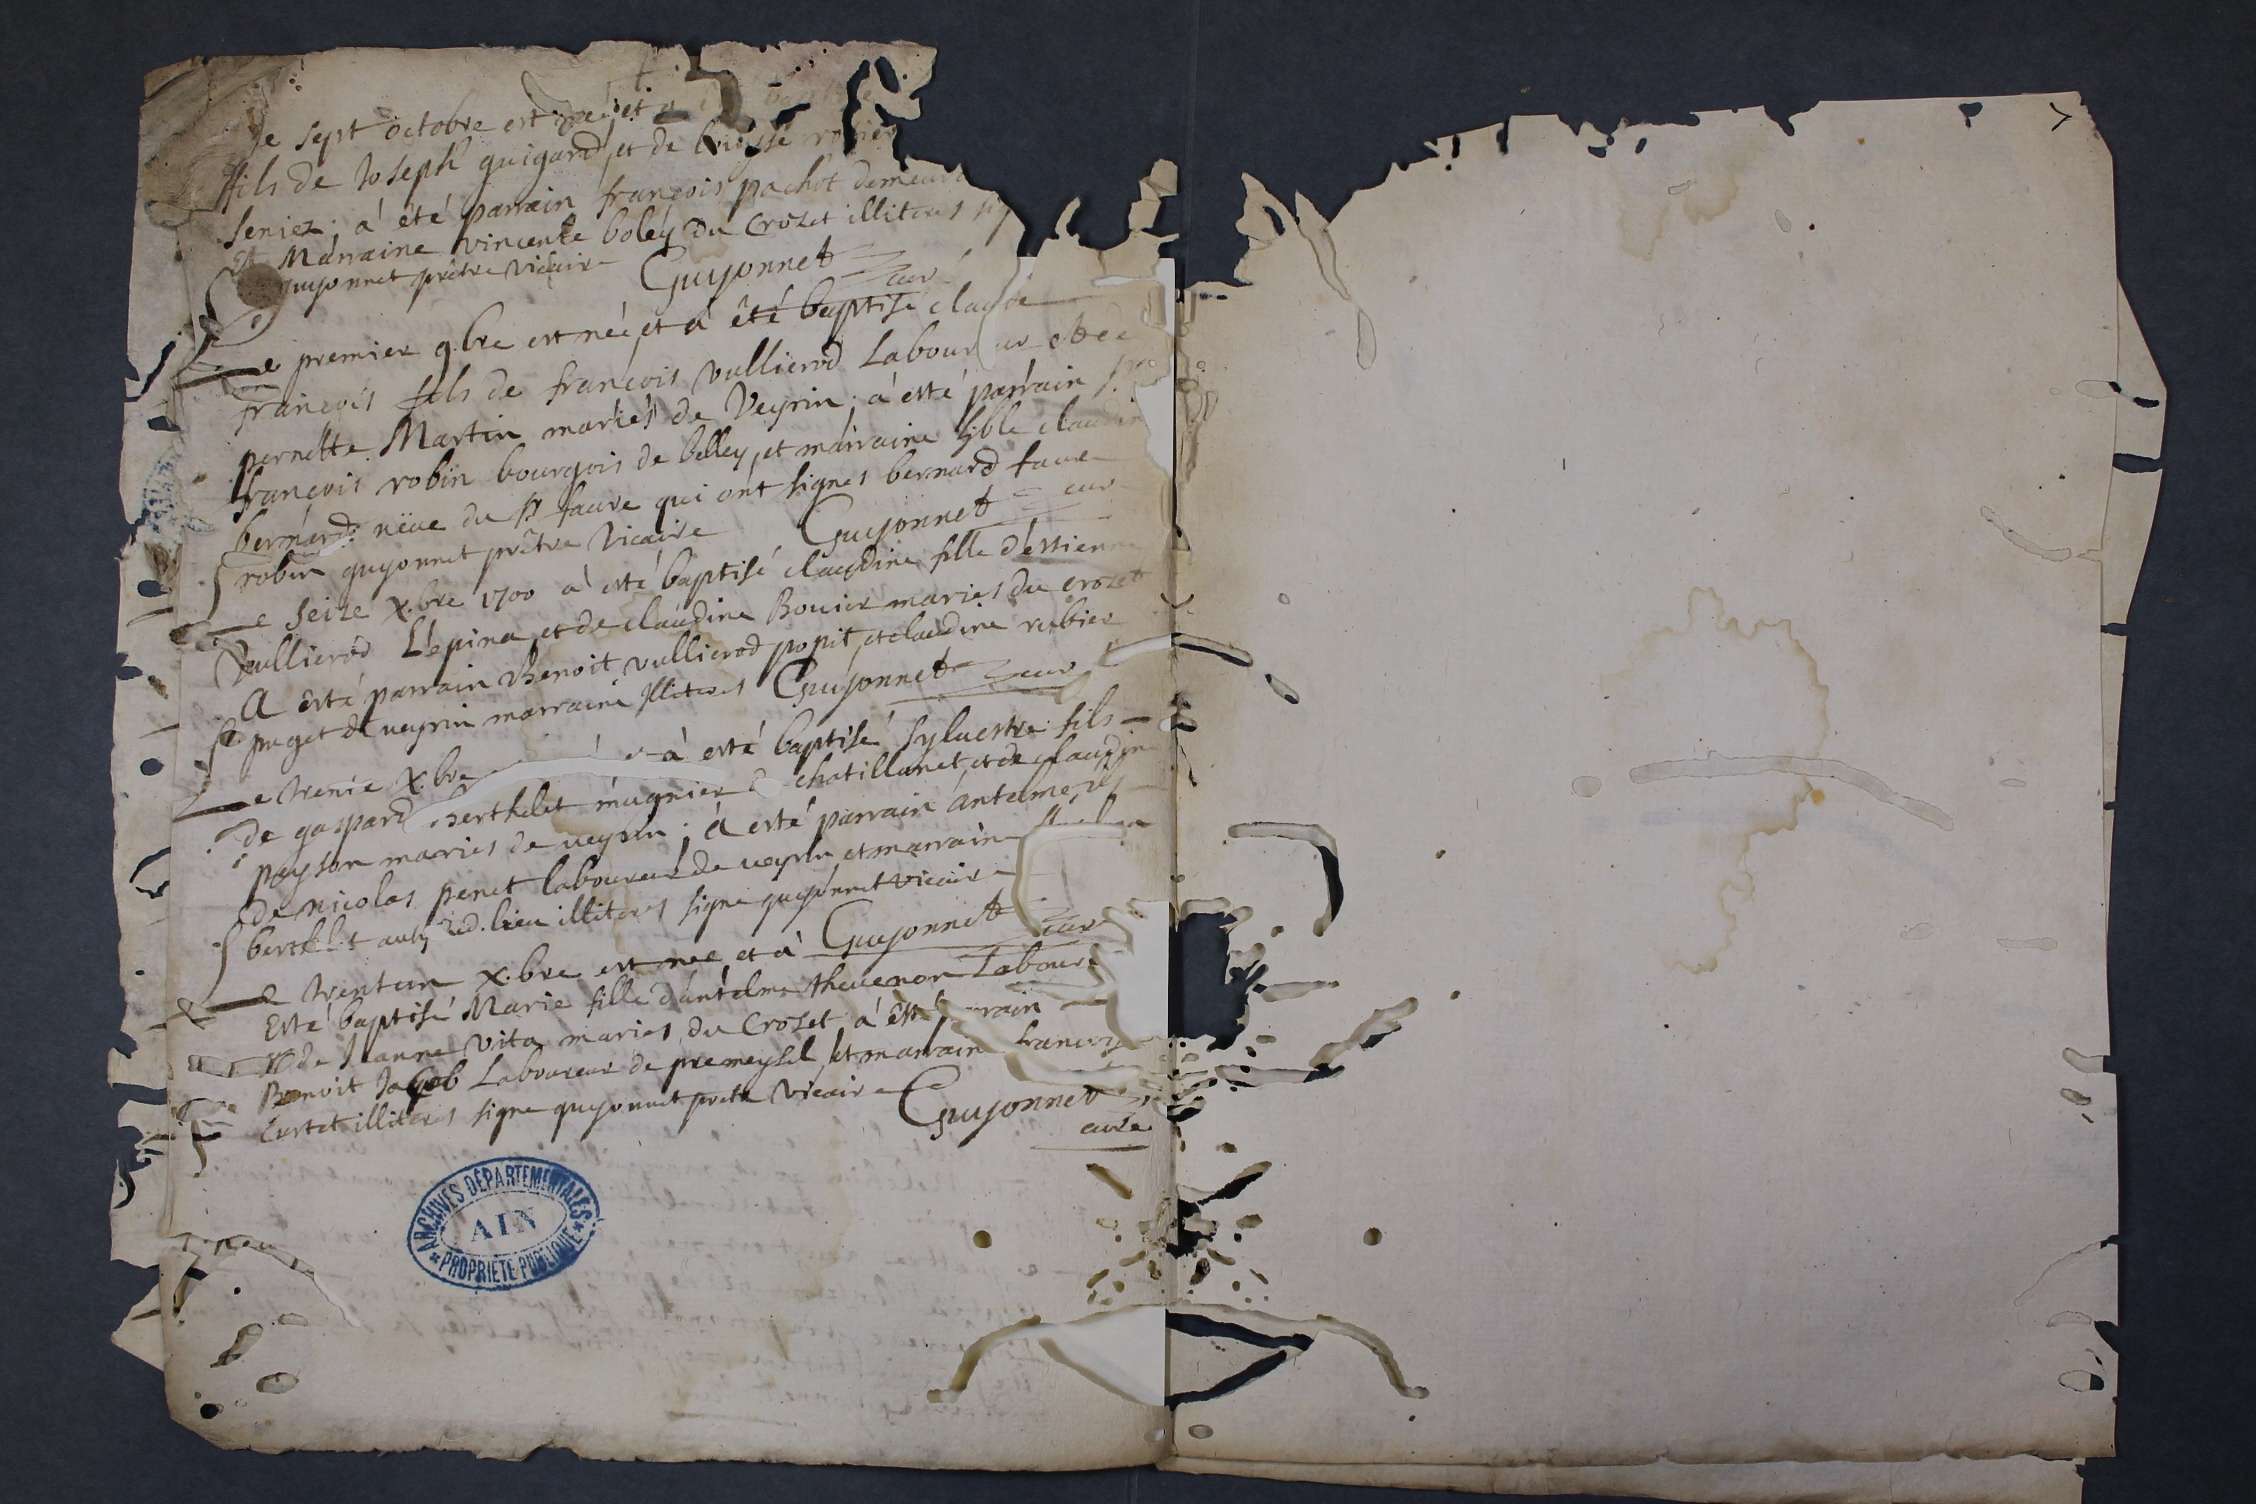 Le sept octobre est née, et a
fils de Joseph guigard, et de
Seniez; à été parrain françois pachot
et Marraine vincente boley du Crozet illiteres
guyonnet prêtre vicaire Guyonnet cur
Le premier 9.bre est née, et à été baptisé claude
françois fils de françois vullierod Labour ur et de
pernette Martin mariés de Veyrin; à esté parrain
françois robin bourgois de belley, et marraine claudin
bernard; nèue du sr faure qui ont signes bernard faure
robin guyonnet prêtre vicaire Guyonnet cur
Le Seize X.bre 1700 à esté baptisé claudine fille d'estienne
Vullierod L'epina et de claudine Bouier maries du crozet
A esté parrain Benoit vullierod popit, et claudine rubier
puget de veyrin marraine Illiteres Guyonnet cur
Le trente X.bre à esté baptisé Sylvestre fils
de gaspard berthelet mugnier chatillonet, et de claudine
peyson maries de veyrin; à esté parrain antelme
de nicolas penet laboureur de veyrin et marraine
berthelet aud. lieu illiteres signe guyonnet vicaire
Guyonnet cur
Le trentun X.bre est nee, et à
Esté baptisé Marie fille d'antelme thevenon Laboure
et de Jeanne vita maries du Crozet; à été rrain
Benoit Jacob Laboureur de premeysel, et marraine francoise
Curtet illiteres signe guyonnet pretre vicaire Guyonnet
curé
ARCHIVES DÉPARTEMENTALES
AIN
PROPRIÉTÉ PUBLIQUE